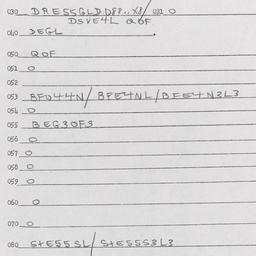 030 DRESSGLD D8P..X8/ 031 O
DSVE4L QOF
040 DEGL
050 QOF
051 O
052
053 BFO44N/BPE4NL/BFE4N3L3
054 O
055 BEG3OF3
056 O
057 O
058 O
059 O
060 O
070 O
080 S+E55SL/S+E55S3L3